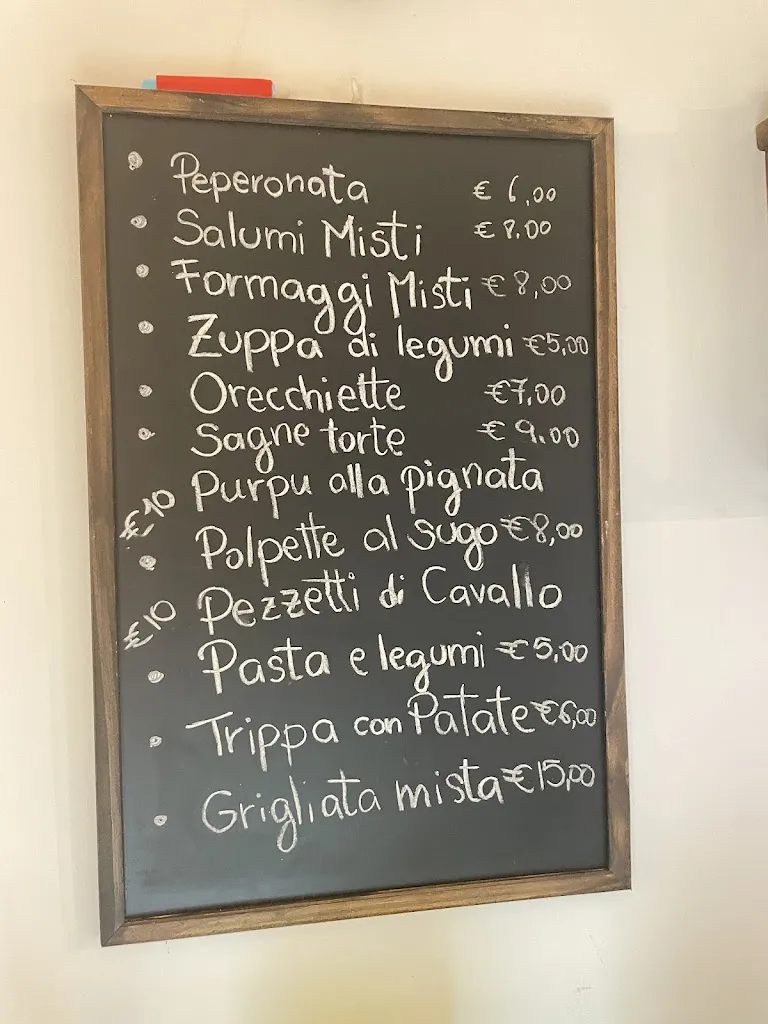 • Peperonata € 6,00
• Salumi Misti € 8.00
• Formaggi Misti € 8,00
• Zuppa di legumi €5,00
• Orecchiette €7,00
• Sagne torte € 9.00
€10 Purpu alla pignata
• Polpette al sugo €8,00
€10 Pezzetti di Cavallo
• Pasta e legumi €5,00
• Trippa con Patate €6,00
• Grigliata mista €15,00